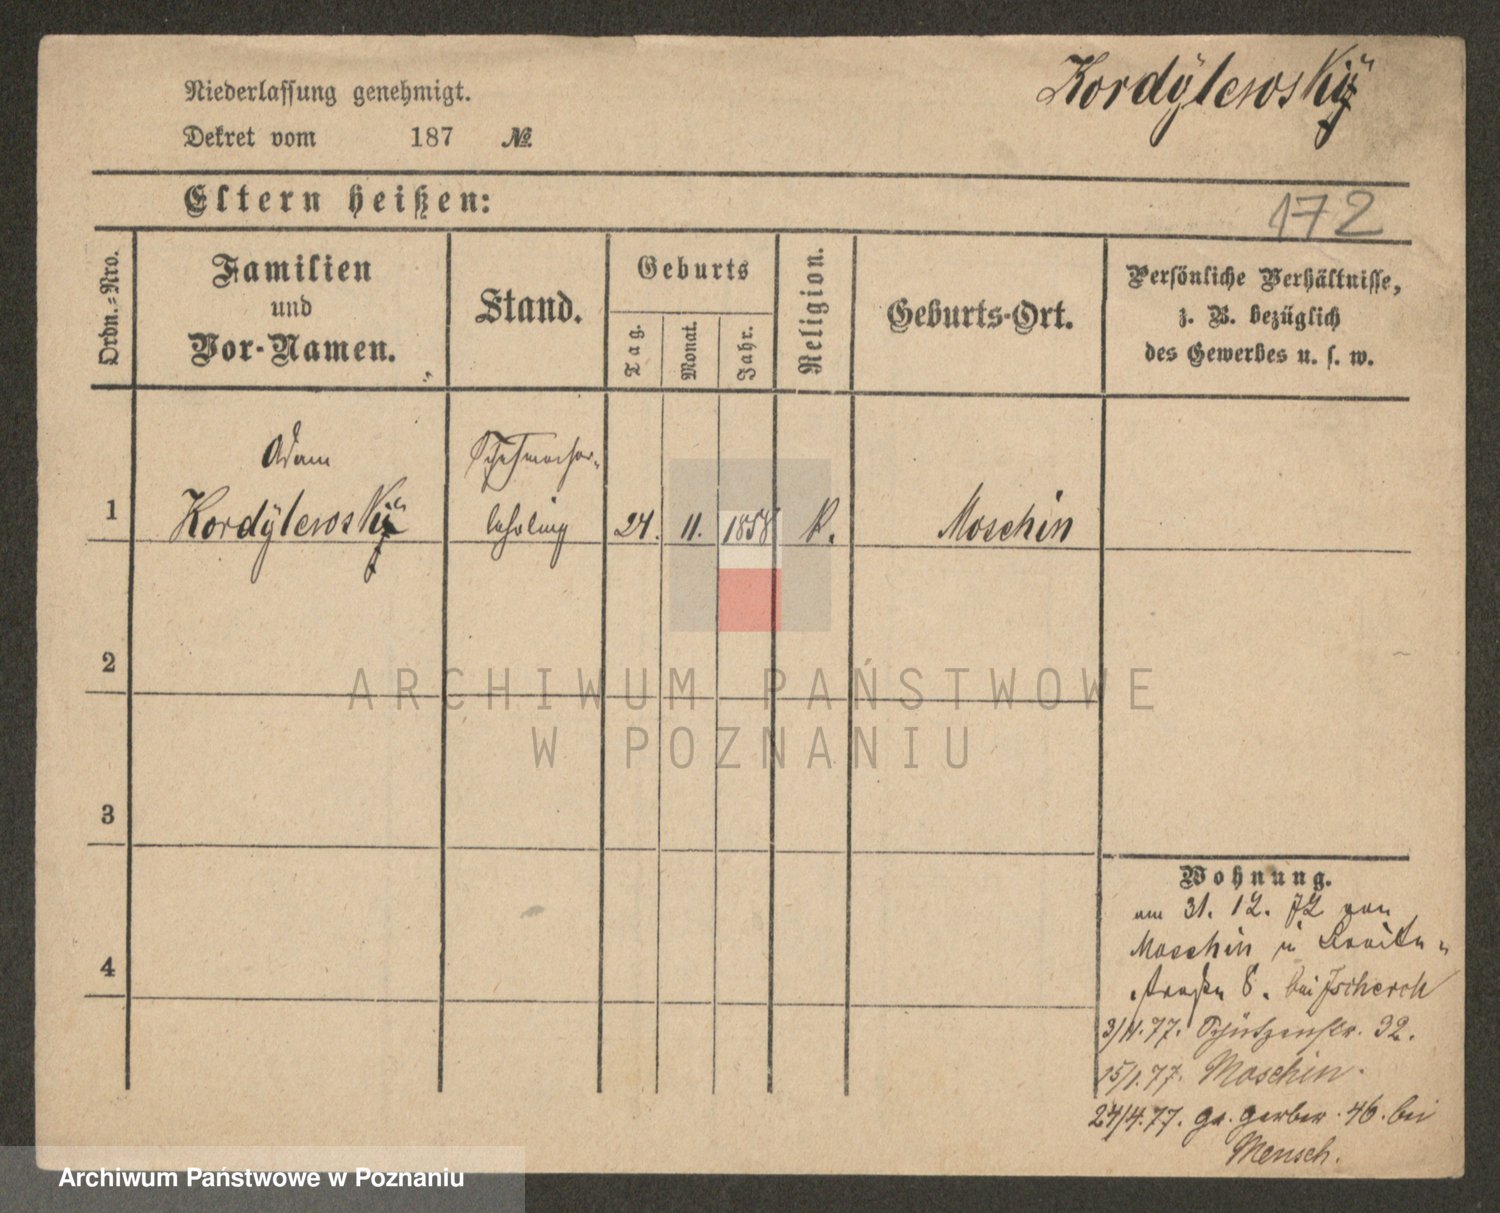 Kordÿlewskÿ
Niederlassung genehmigt.
Dekret vom 187 №
Eltern heißen:
172
Ordn.-Nro.
Familien
und
Vor-Namen.
Stand.
Geburts
Tag.
Monat.
Jahr.
Religion.
Geburts-Ort.
Persönliche Verhältnisse,
z. B. bezüglich
des Gewerbes u. s. w.
1
Adam
Kordÿlewskÿ
lehrling
24. 11. 1858 K.
Moschin
2
3
4
Wohnung.
am 31. 12. 72 von
Moschin in Breite-
straßen 8. bei
77. Schützenstr. 32.
15/1. 77. Moschin.
24/4. 77. gr. gerber. 46. bei
Mensch.
ARCHIWUM PAŃSTWOWE
W POZNANIU
Archiwum Państwowe w Poznaniu